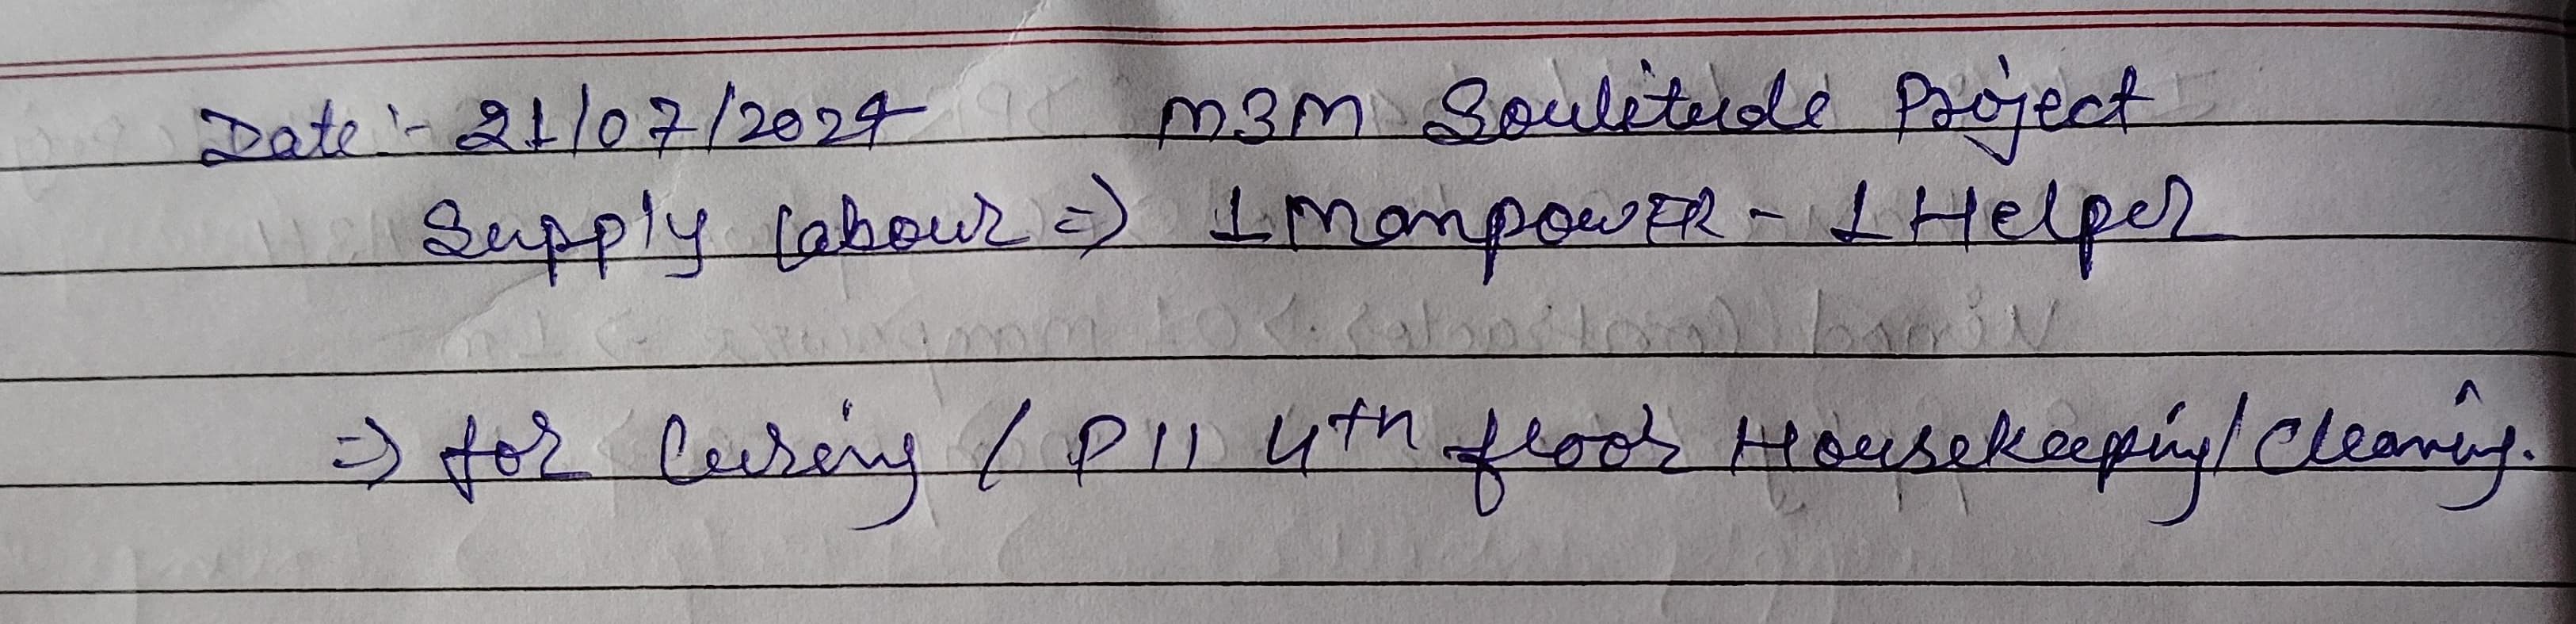 Date :- 21/07/2024 M3M Soulitude Project
Supply Labour => 1 Manpower - 1 Helper
=> for Curing / P11 4th floor Housekeeping/Cleaning.